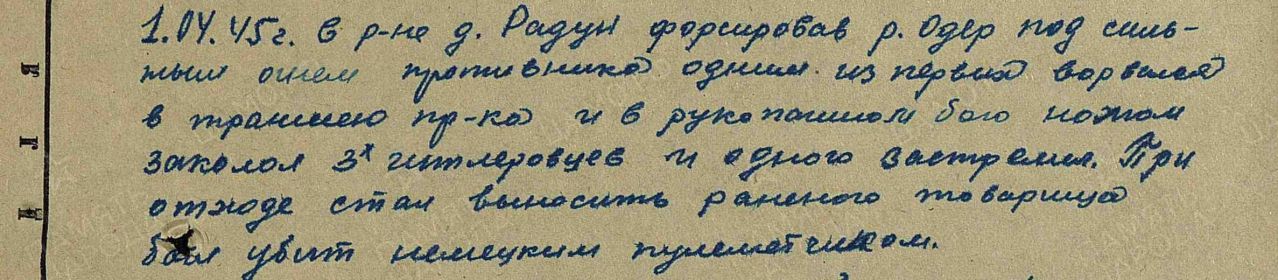 1.04.45г. в р-не д. Радун форсировав р. Одер под силь-
ным огнем противника одним из первых ворвался
в траншею пр-ка и в рукопашном бою ножом
заколол 3х гитлеровцев и одного застрелил. При
отходе стал выносить раненого товарища
был убит немецким пулеметчиком.